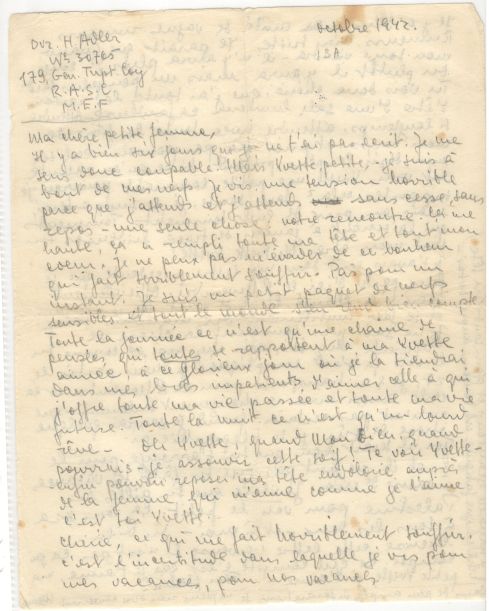 octobre 1942.
Dvr. H. Adler
No 30765
179, Gen. Trpt. Coy
R.A.S.C
M.E.F
13A
Ma chère petite femme,
Il y a bien six jours que je ne t'ai pas écrit. Je me
sens donc coupable. Mais Yvette petite, je suis à
bout de mes nerfs. Je vis une tension horrible
parce que j'attends et j'attends sans cesse, sans
repos - une seule chose, notre rencontre. Ça me
hante, ça a rempli toute ma tête et tout mon
coeur. Je ne peux pas m'évader de ce bonheur
qui fait terriblement souffrir. Pas pour un
instant. Je suis un petit paquet de nerfs
sensibles et tout le monde s'en rend bien compte
Toute la journée ce n'est qu'une chaine de
pensées, qui toutes se rapportent à ma Yvette
aimée, à ce glorieux jour où je la tiendrai
dans mes bras impatients d'aimer celle à qui
j'offre toute ma vie passée et toute ma vie
future. Toute la nuit ce n'est qu'un lourd
rêve - Oh Yvette, quand mon Dieu, quand
pourrais-je assouvir cette soif! Te voir Yvette -
enfin pouvoir reposer ma tête endolorie auprès
de la femme qui m'aime comme je l'aime
c'est toi Yvette.
Chérie, ce qui me fait horriblement souffrir,
c'est l'incertitude dans laquelle je vis pour
mes vacances, pour nos vacances